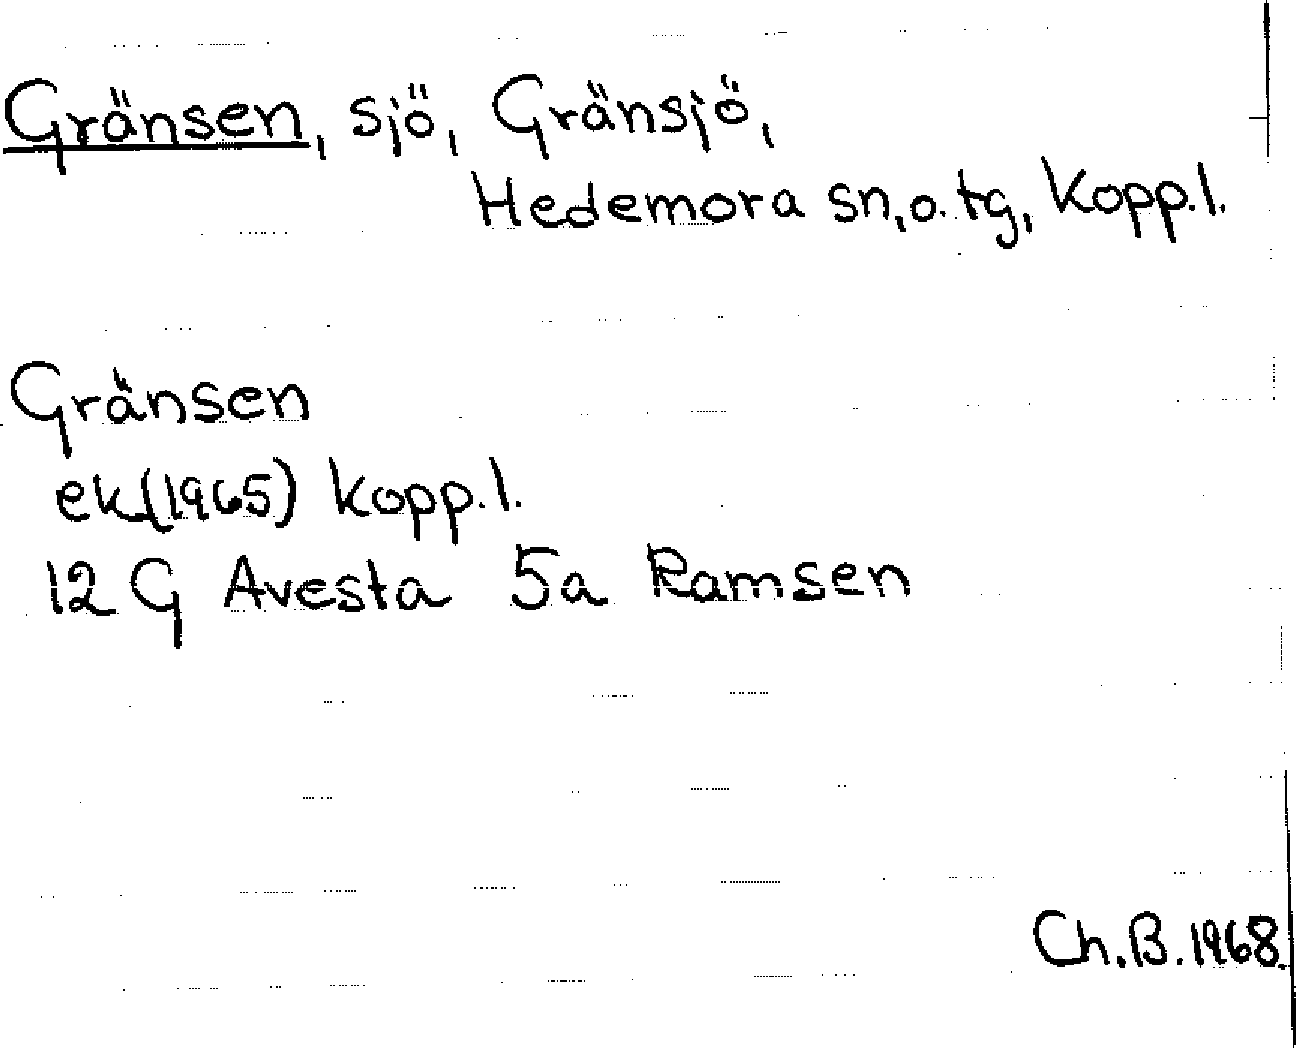 Gränsen, sjö, Gränsjö,
Hedemora sn, o. tg, Kopp. l.
Gränsen
ek (1965) Kopp. l.
12 G Avesta 5a Ramsen
Ch. B. 1968.